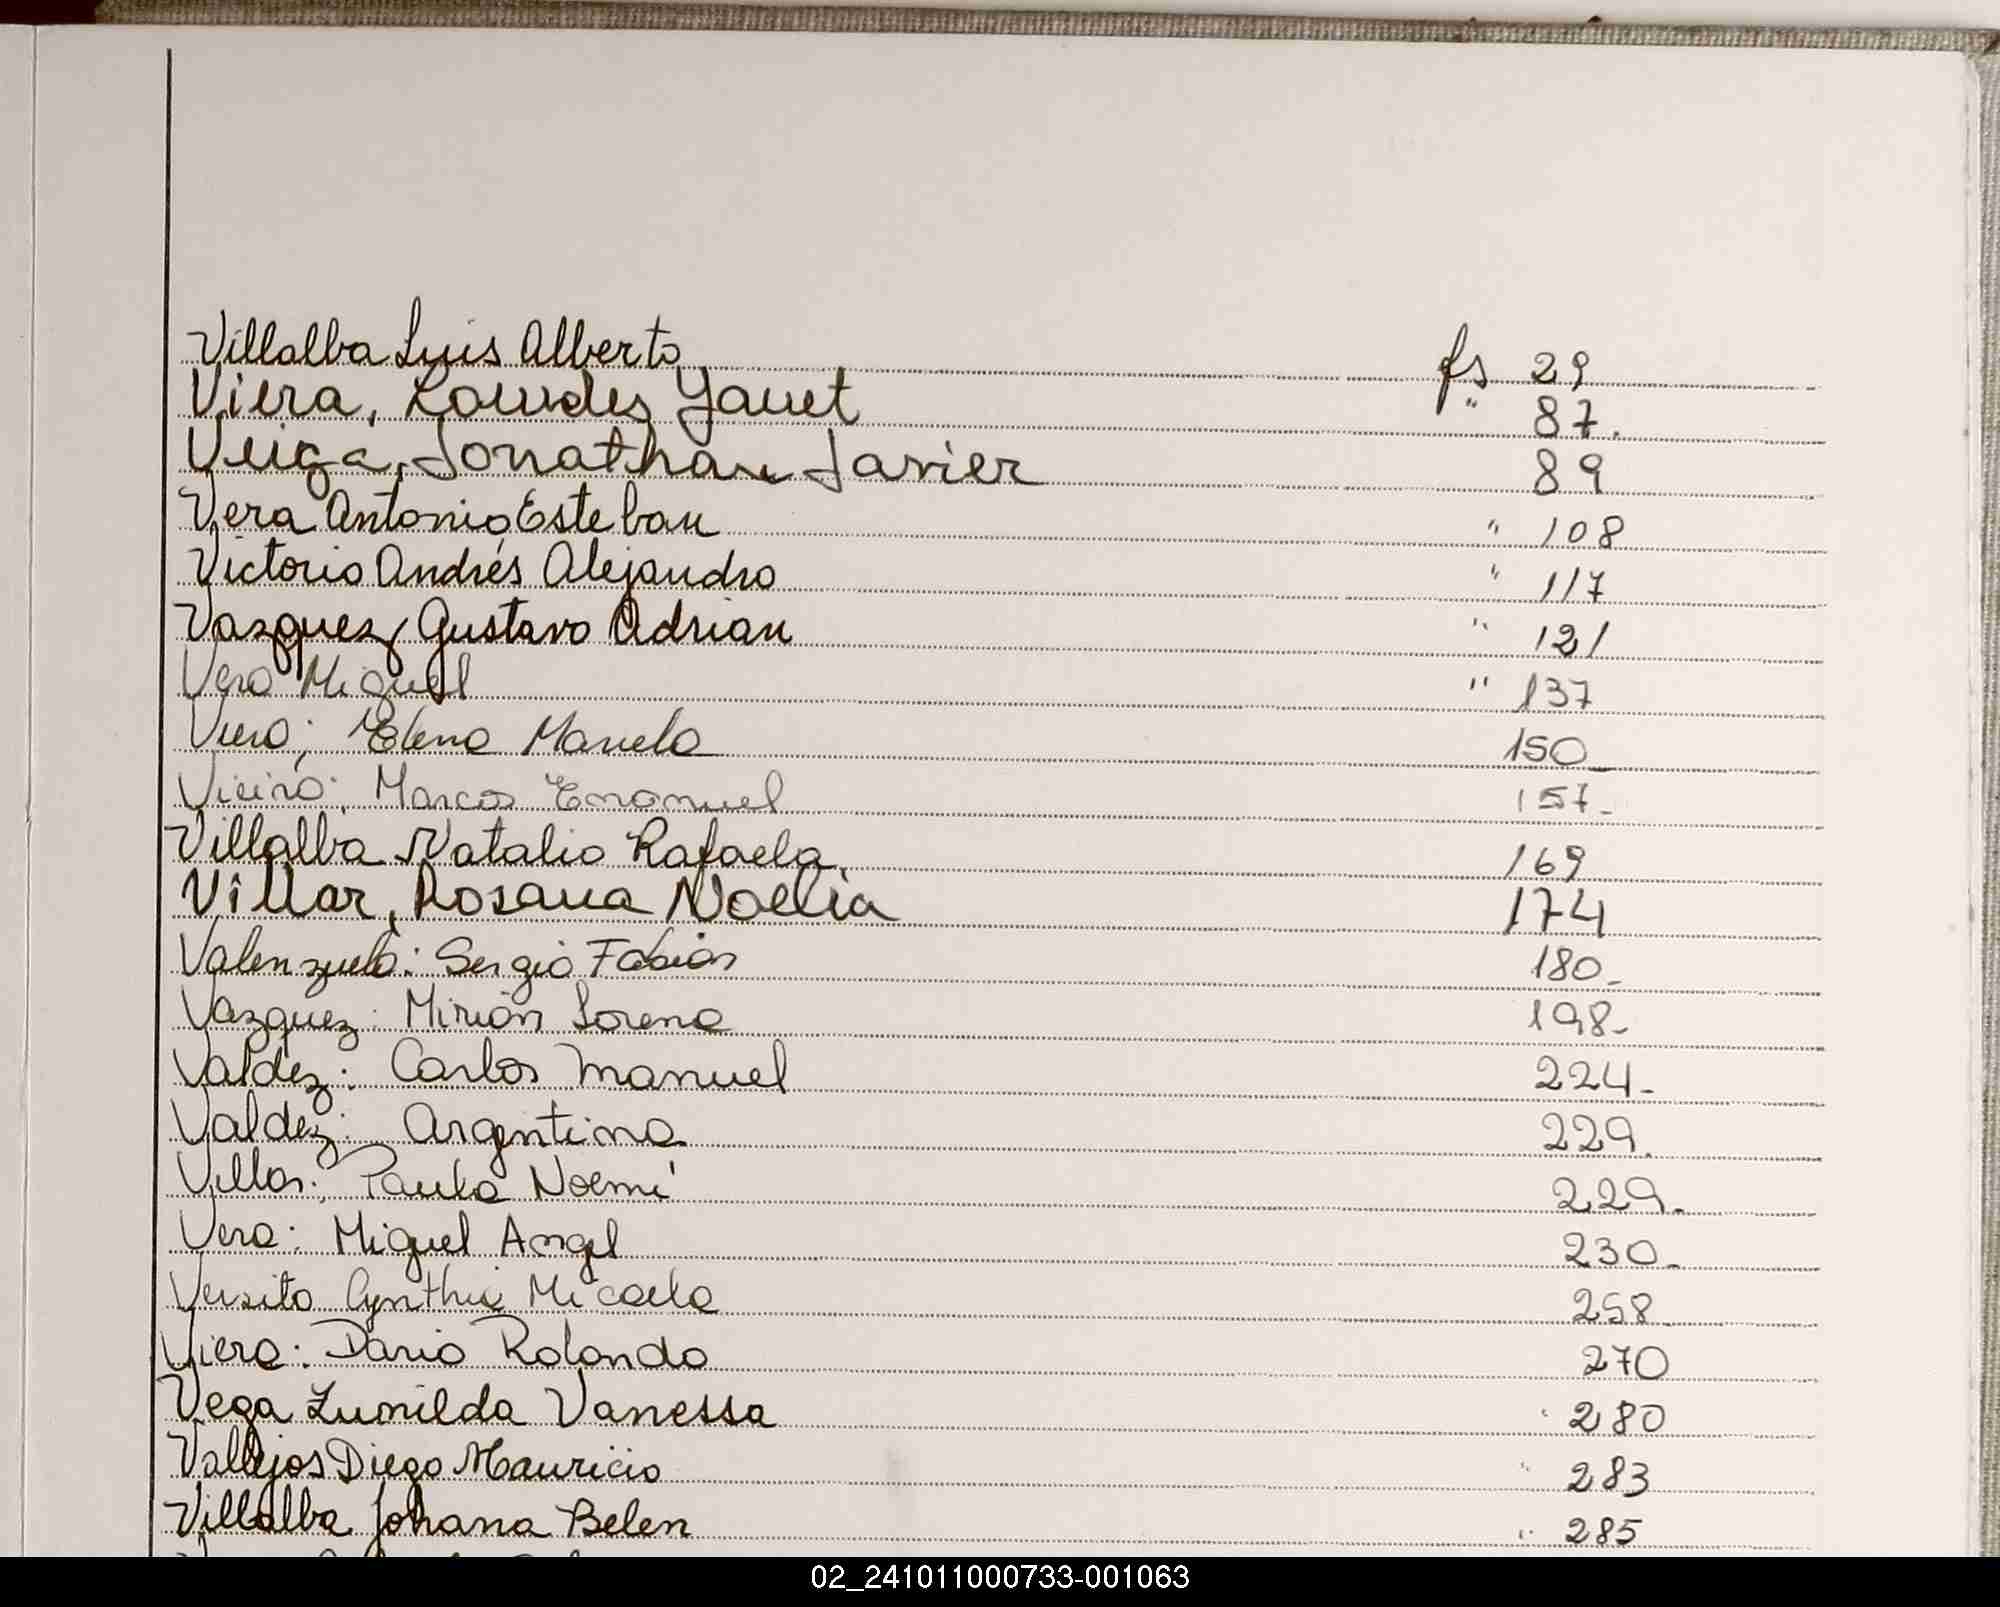 Villalba Luis Alberto fs 29
Viera, Lourdes Yanet " 87.
Veiga, Jonathan Javier 89
Vera Antonio Esteban " 108
Victorio Andrés Alejandro " 117
Vazquez Gustavo Adrian " 121
Vera Miguel " 137
Viera; Elena Marcela 150_
Vieira; Marcos Emanuel 157_
Villalba Natalia Rafaela 169
Villar, Rosana Noelia 174
Valenzuela: Sergio Fabián 180_
Vazquez: Mirian Lorena 198_
Valdéz: Carlos Manuel 224_
Valdez: Argentina 229.
Villar: Paula Noemí 229.
Vera: Miguel Angel 230_
Cynthia Micaela 258_
Viera: Dario Rolando 270
Vega Zunilda Vanessa " 280
Vallejos Diego Mauricio " 283
Villalba Johana Belen " 285
02_241011000733-001063